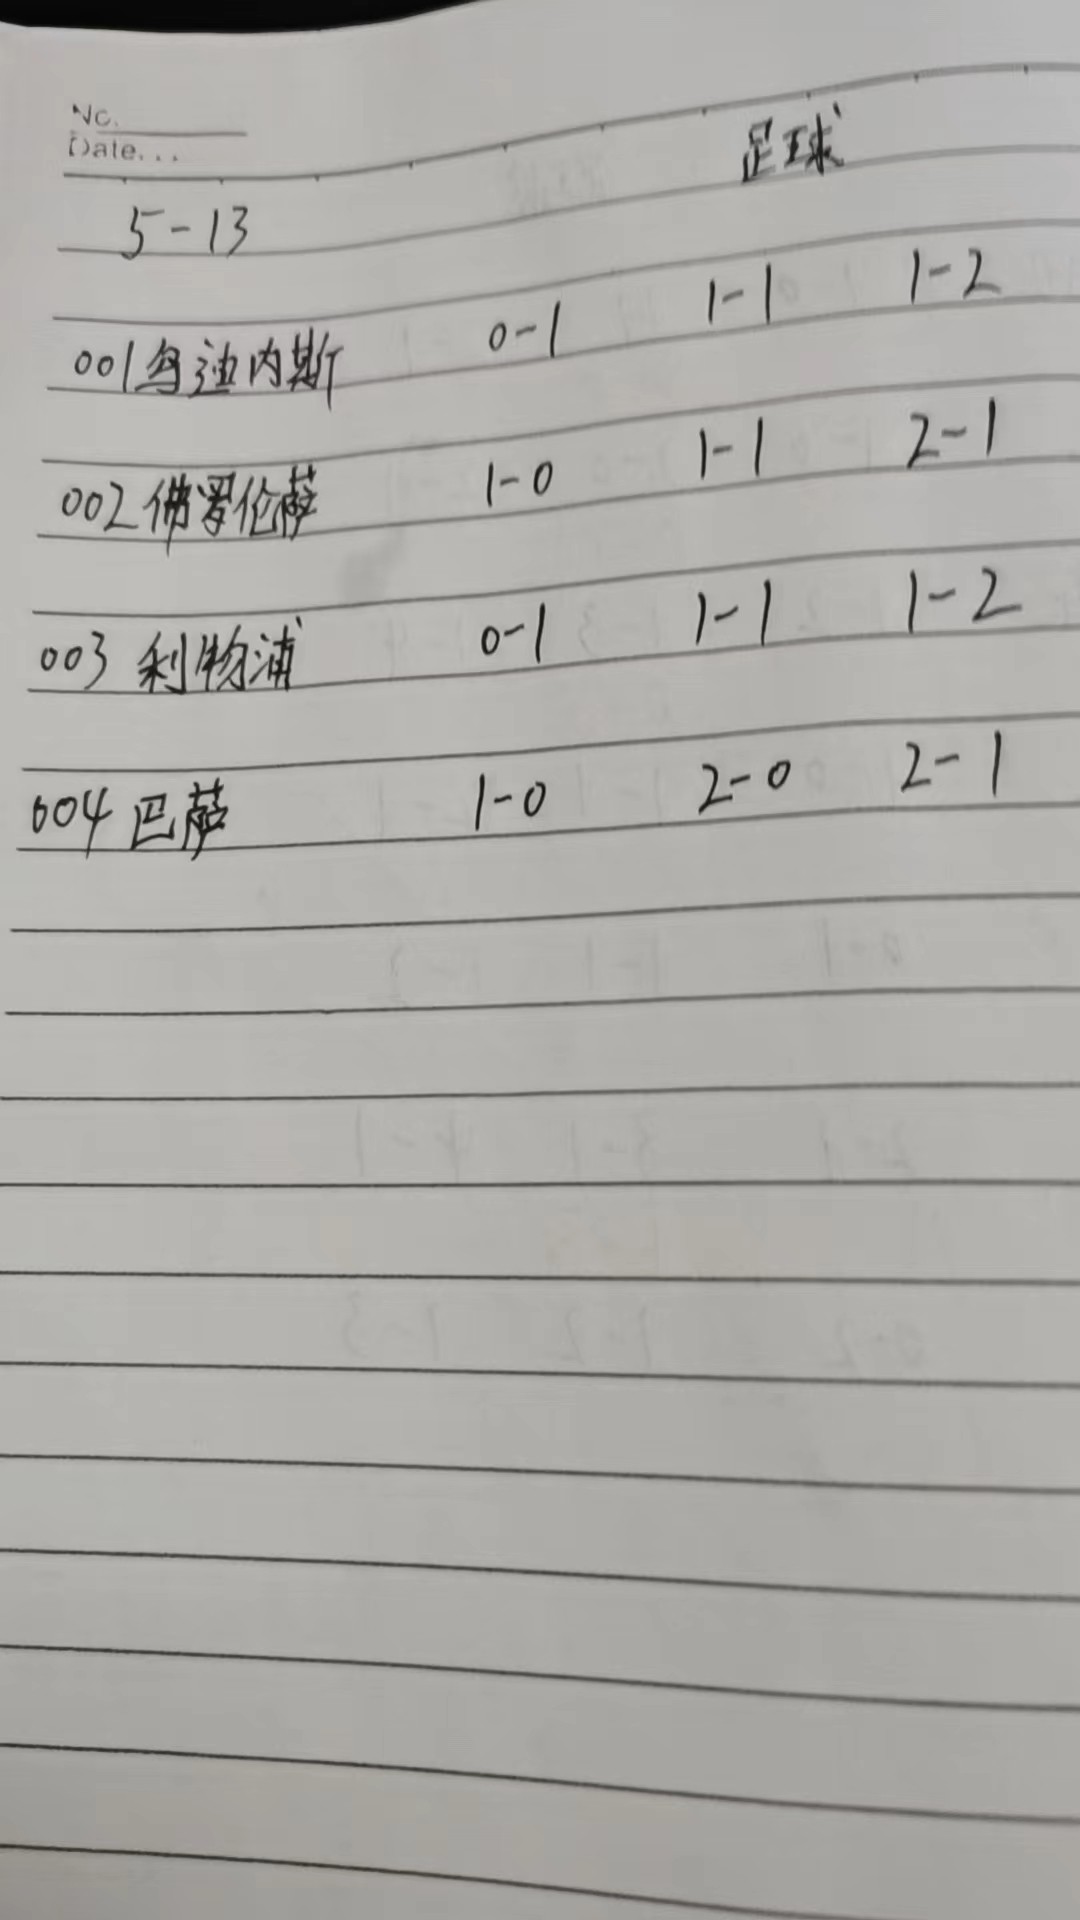 No.
Date...
足球
5-13
001乌迪内斯 0-1 1-1 1-2
002佛罗伦萨 1-0 1-1 2-1
003 利物浦 0-1 1-1 1-2
004 巴萨 1-0 2-0 2-1